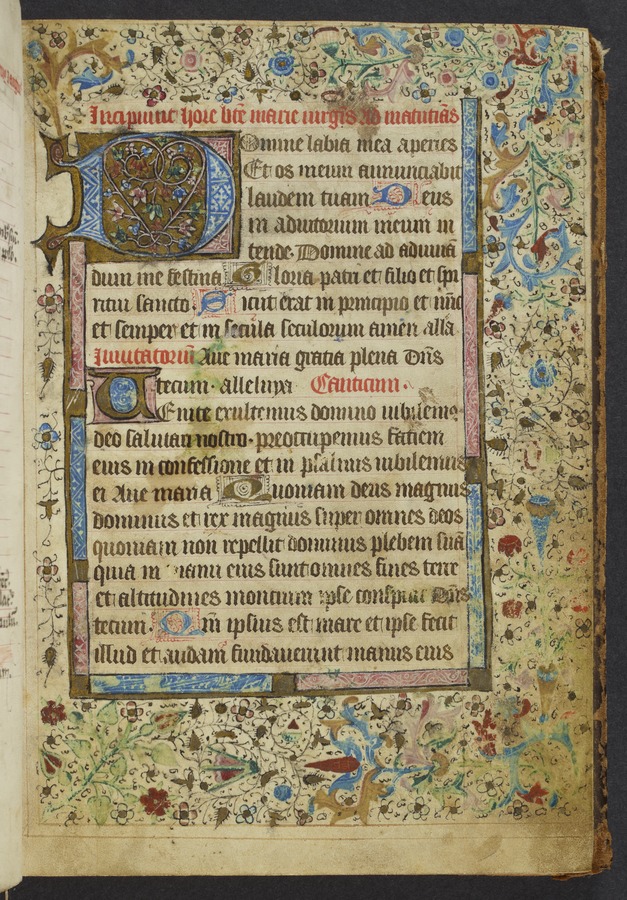 Incipiunt hore bte marie virgis ad matutias
Domine labia mea aperies
Et os meum annunciabit
laudem tuam Deus
in adiutorium meum in
tende. Domine ad adiuua
dum me festina Gloria patri et filio et spi
ritui sancto. Sicut erat in principio et nuc
et semper et in secula seculorum amen alla
Inuitatoriu Aue maria gratia plena dns
tecum. alleluya Canticum.
Uenite exultemus domino iubilemus
deo salutari nostro. preoccupemus faciem
eius in confessione et in psalmis iubilemus
ei Aue maria Quoniam deus magnus
dominus et rex magnus super omnes deos
quoniam non repellit dominus plebem sua
quia in manu eius sunt omnes fines terre
et altitudines montium ipse conspicit Dns
tecum. Qm ipsius est mare et ipse fecit
illud et aridam fundauerunt manus eius